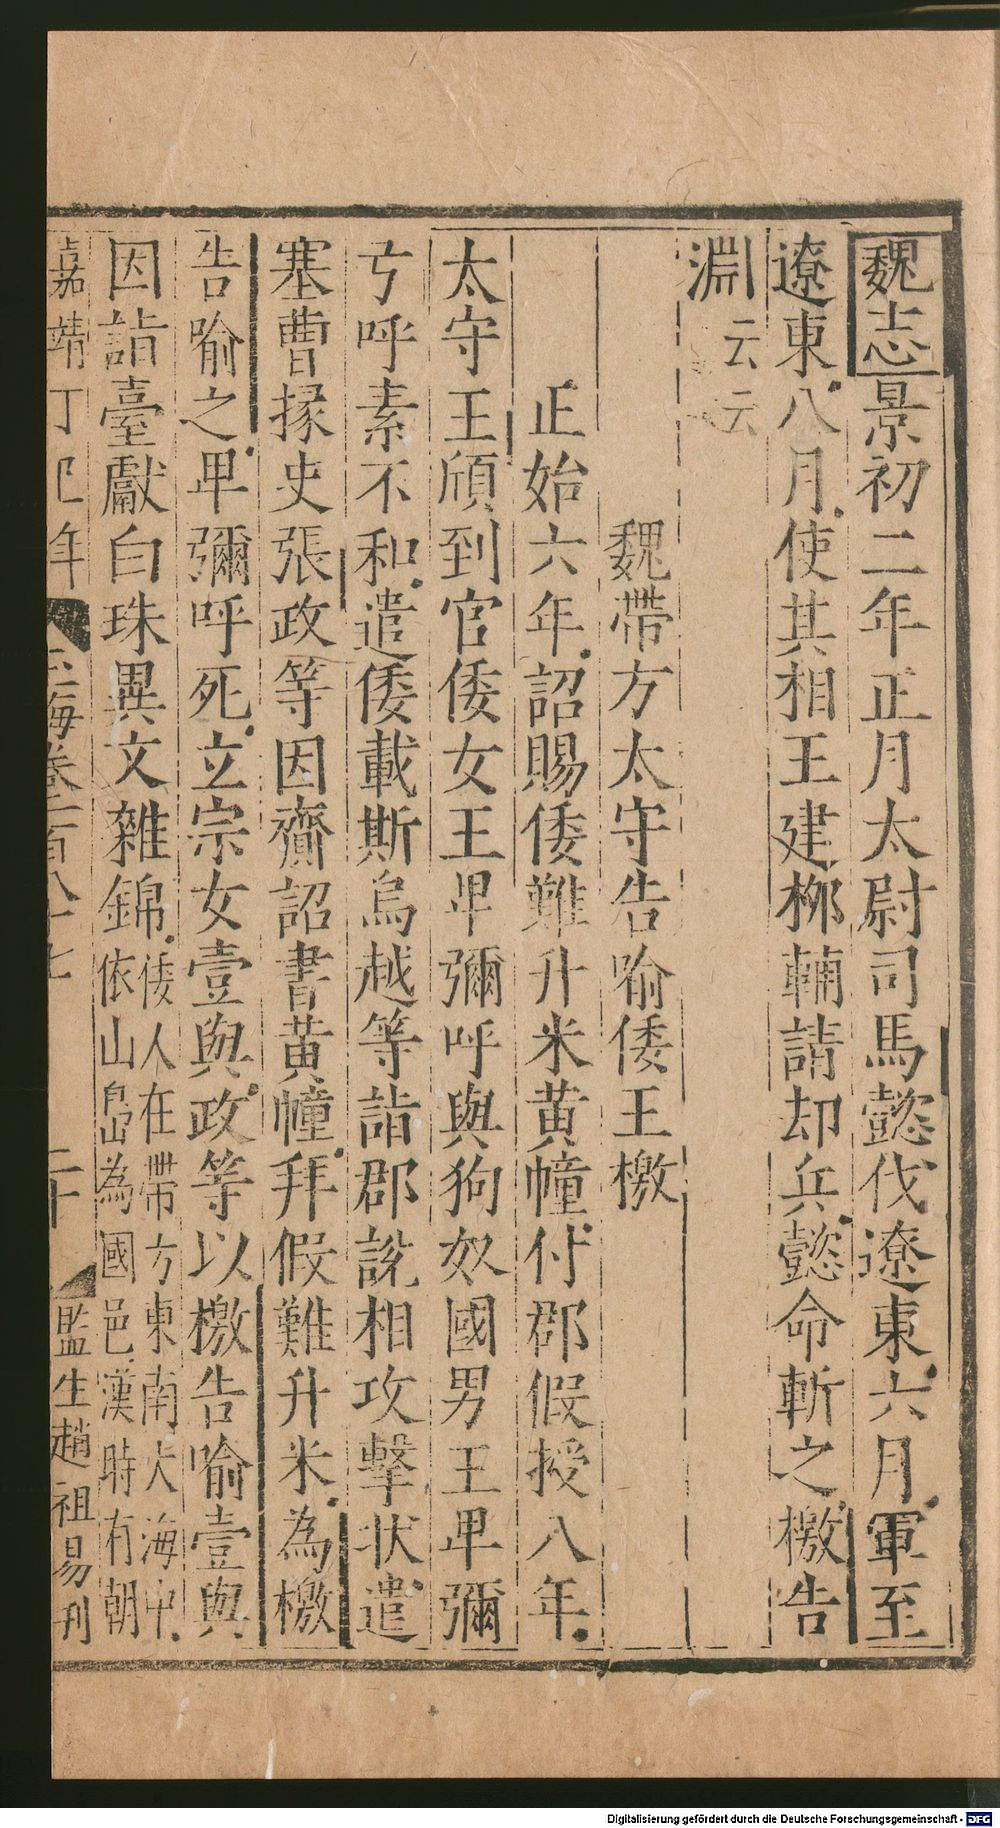 魏志景初二年正月太尉司馬懿伐遼東六月軍至
遼東八月使其相王建栁輔請却兵懿命斬之檄告
淵云云
魏帶方太守告喻倭王檄
正始六年詔賜倭難升米黄幢付郡假授八年
太守王頎到官倭女王卑彌呼與狗奴國男王卑彌
弓呼素不和遣倭載斯烏越等詣郡說相攻擊狀遣
塞曹掾史張政等因齎詔書黄幢拜假難升米為檄
告喻之卑彌呼死立宗女壹與政等以檄告喻壹與
因詣臺獻白珠異文雜錦倭人在帶方東南大海中
依山島為國邑漢時有朝
嘉靖丁巳年 玉海卷二百八十七 二十 監生趙祖易刊
Digitalisierung gefördert durch die Deutsche Forschungsgemeinschaft - DFG